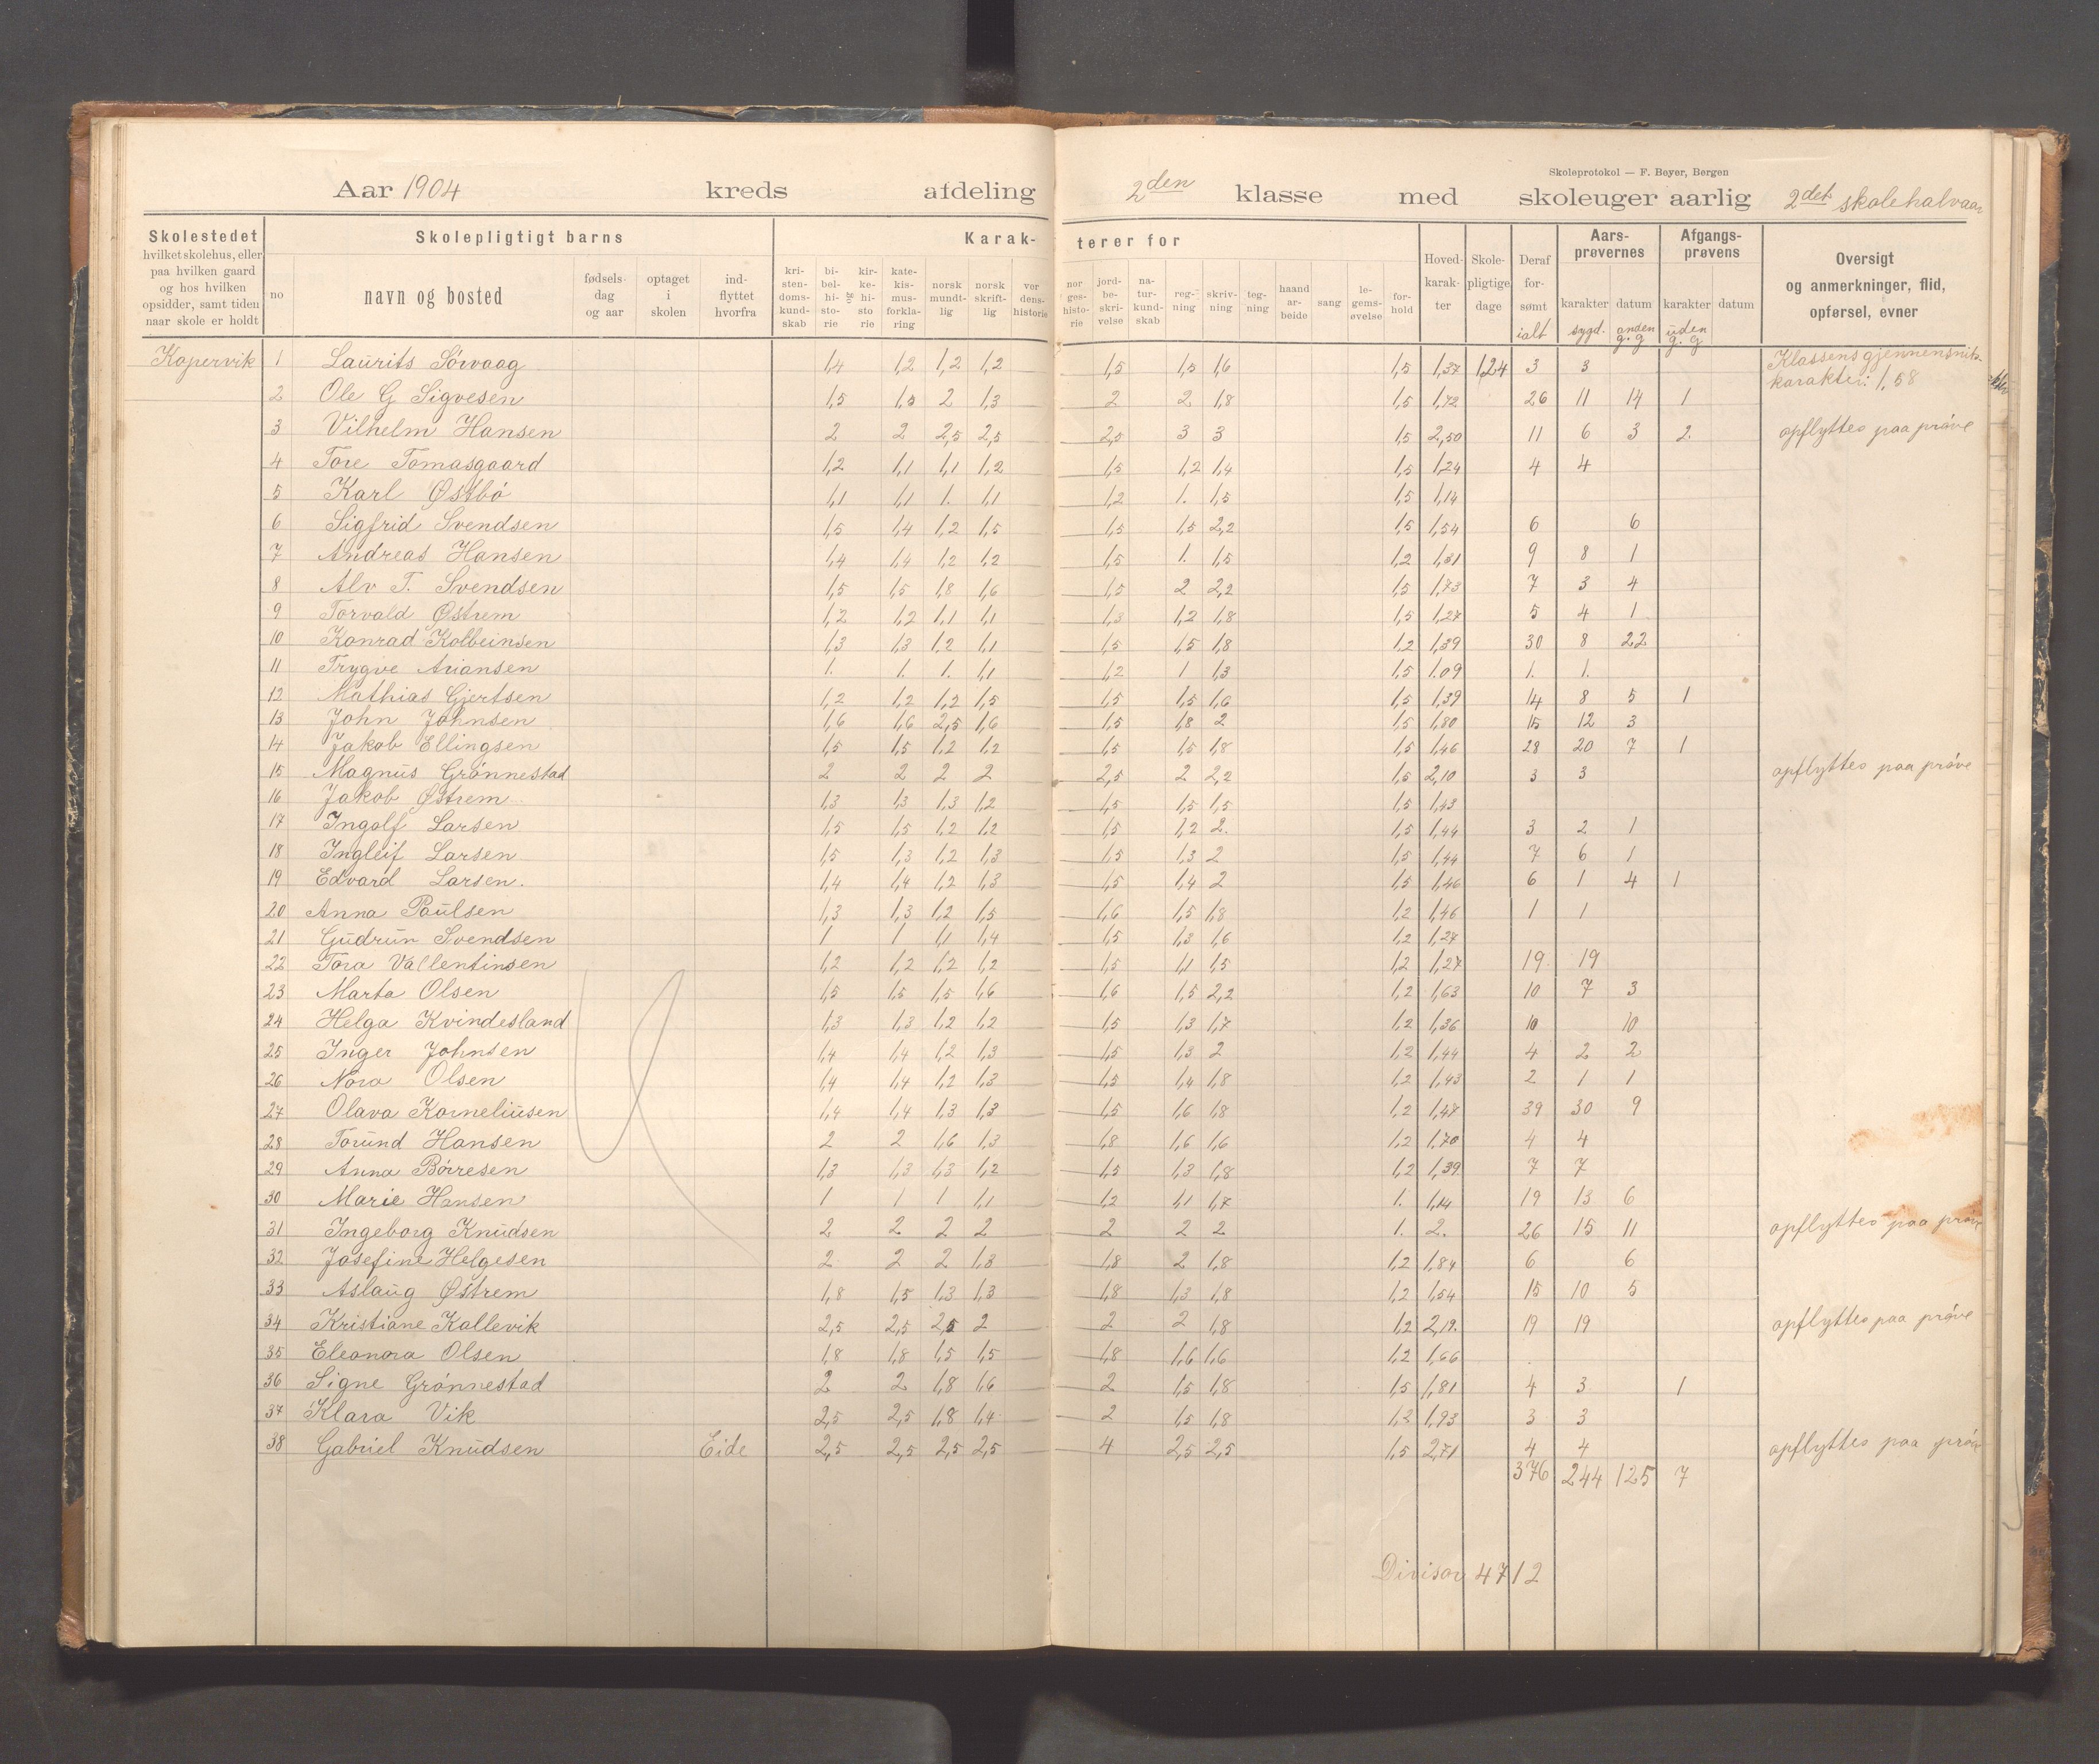 Skoleprotokol — F. Beyer, Bergen
Aar 1904 kreds afdeling 2den klasse med skoleuger aarlig 2det skolehalvaar
Skolestedet hvilket skolehus, eller paa hvilken gaard og hos hvilken opsidder, samt tiden naar skole er holdt
Skolepligtigt barns
no navn og bosted fødsels dag og aar optaget i skolen ind-flyttet hvorfra
Karak-terer for
kri-sten-doms-kund-skab bi-bel-hi-sto-rie og kir-ke-hi-sto rie kate-kis-mus-forkla-ring norsk mundt-lig norsk skrift-lig ver dens-historie nor ges-histo-rie jord-be-skri-velse na-tur-kund-skab reg-ning skriv-ning teg-ning haand ar-beide sang le-gems-øvelse for-hold
Hoved-karak-ter Skole-pligtige dage Deraf for-sømt ialt
Aars-prøvernes karakter datum sygd. anden g. g
Afgangs-prøvens karakter datum uden g. g
Oversigt og anmerkninger, flid, opførsel, evner
Kopervik 1 Laurits Sørvaag 1,4 1,2 1,2 1,2 1,5 1,5 1,6 1,5 1,37 124 3 3 Klassens gjennemsnits-karakter: 1,58
2 Ole G Sigvesen 1,5 1,5 2 1,3 2 2 1,8 1,5 1,72 26 11 14 1
3 Vilhelm Hansen 2 2 2,5 2,5 2,5 3 3 1,5 2,50 11 6 3 2. opflyttes paa prøve
4 Tore Tomasgaard 1,2 1,1 1,1 1,2 1,5 1,2 1,4 1,5 1,24 4 4
5 Karl Østbø 1,1 1,1 1. 1,1 1,2 1. 1,5 1,5 1,14
6 Sigfrid Svendsen 1,5 1,4 1,2 1,5 1,5 1,5 2,2 1,5 1,54 6 6
7 Andreas Hansen 1,4 1,4 1,2 1,2 1,5 1. 1,5 1,2 1,31 9 8 1
8 Alv T. Svendsen 1,5 1,5 1,8 1,6 1,5 2 2,2 1,5 1,73 7 3 4
9 Torvald Østrem 1,2 1,2 1,1 1,1 1,3 1,2 1,8 1,5 1,27 5 4 1
10 Konrad Kolbeinsen 1,3 1,3 1,2 1,1 1,5 1,5 1,8 1,2 1,39 30 8 22
11 Trygve Ariansen 1. 1. 1. 1,1 1,2 1 1,3 1,5 1.09 1. 1.
12 Mathias Gjertsen 1,2 1,2 1,2 1,5 1,5 1,5 1,6 1,5 1,39 14 8 5 1
13 John Johnsen 1,6 1,6 2,5 1,6 1,5 1,8 2 1,5 1,80 15 12 3
14 Jakob Ellingsen 1,5 1,5 1,2 1,2 1,5 1,5 1,8 1,5 1,46 28 20 7 1
15 Magnus Grønnestad 2 2 2 2 2,5 2 2,2 1,5 2,10 3 3 opflyttes paa prøve
16 Jakob Østrem 1,3 1,3 1,3 1,2 1,5 1,5 1,5 1,5 1,43
17 Ingolf Larsen 1,5 1,5 1,2 1,2 1,5 1,2 2. 1,5 1,44 3 2 1
18 Ingleif Larsen 1,5 1,3 1,2 1,3 1,5 1,3 2 1,5 1,44 7 6 1
19 Edvard Larsen. 1,4 1,4 1,2 1,3 1,5 1,4 2 1,5 1,46 6 1 4 1
20 Anna Paulsen 1,3 1,3 1,2 1,5 1,6 1,5 1,8 1,2 1,46 1 1
21 Gudrun Svendsen 1 1 1,1 1,4 1,5 1,3 1,6 1,2 1,27
22 Tora Vallentinsen 1,2 1,2 1,2 1,2 1,5 1,1 1,5 1,2 1,27 19 19
23 Marta Olsen 1,5 1,5 1,5 1,6 1,6 1,5 2,2 1,2 1,63 10 7 3
24 Helga Kvindesland 1,3 1,3 1,2 1,2 1,5 1,3 1,7 1,2 1,36 10 10
25 Inger Johnsen 1,4 1,4 1,2 1,3 1,5 1,3 2 1,2 1,44 4 2 2
26 Nora Olsen 1,4 1,4 1,2 1,3 1,5 1,4 1,8 1,2 1,43 2 1 1
27 Olava Korneliusen 1,4 1,4 1,3 1,3 1,5 1,6 1,8 1,2 1,47 39 30 9
28 Torund Hansen 2 2 1,6 1,3 1,8 1,6 1,6 1,2 1,70 4 4
29 Anna Børresen 1,3 1,3 1,3 1,2 1,5 1,3 1,8 1,2 1,39 7 7
30 Marie Hansen 1 1 1 1,1 1,2 1,1 1,7 1. 1,14 19 13 6
31 Ingeborg Knudsen 2 2 2 2 2 2 2 1. 2. 26 15 11 opflyttes paa prøve
32 Josefine Helgesen 2 2 2 1,3 1,8 2 1,8 1,2 1,84 6 6
33 Aslaug Østrem 1,8 1,5 1,3 1,3 1,8 1,3 1,8 1,2 1,54 15 10 5
34 Kristiane Kallevik 2,5 2,5 2,5 2 2 2 1,8 1,2 2,19. 19 19 opflyttes paa prøve
35 Eleonora Olsen 1,8 1,8 1,5 1,5 1,8 1,6 1,6 1,2 1,66
36 Signe Grønnestad 2 2 1,8 1,6 2 1,5 1,8 1,5 1,81 4 3 1
37 Klara Vik 2,5 2,5 1,8 1,4 2 1,5 1,8 1,2 1,93 3 3
38 Gabriel Knudsen Eide 2,5 2,5 2,5 2,5 4 2,5 2,5 1,5 2,71 4 4 opflyttes paa prøve
376 244 125 7
Divisor 4712